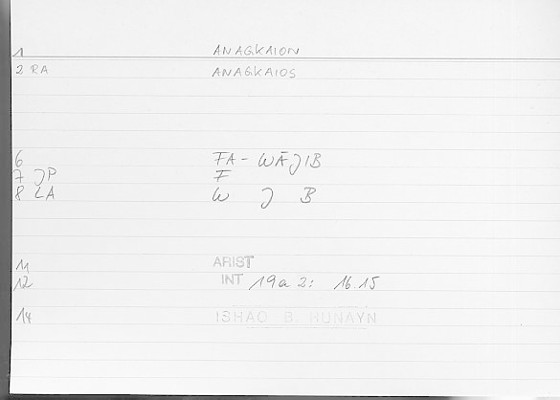 1 ANAGKAION
2 RA ANAGKAIOS
6 FA- WĀJIB
7 JP F
8 LA W J B
11 ARIST
12 INT 19a 2: 16.15
14 ISHAQ B. HUNAYN